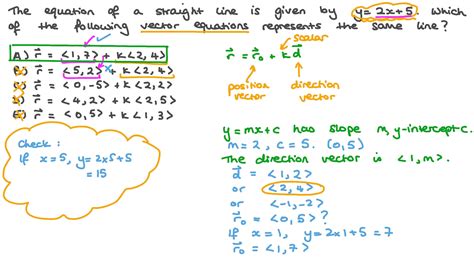 The equation of a straight line is given by y = 2x+5. Which
of the following vector equations represents the same line?
A) r⃗ = <1, 7> + k<2, 4>
B) r⃗ = <5, 2> + k<2, 4>
C) r⃗ = <0, -5> + k<2, 2>
D) r⃗ = <4, 2> + k<2, 5>
E) r⃗ = <0, 5> + k<1, 3>
scalar
r⃗ = r⃗₀ + k d⃗
position vector
direction vector
Check :
if x = 5, y = 2x5+5
= 15
y = mx + c has slope m, y-intercept c.
m = 2, c = 5. (0, 5)
The direction vector is <1, m>.
d⃗ = <1, 2>
or <2, 4>
or <-1, -2>
r⃗₀ = <0, 5> ?
If x = 1, y = 2x1 + 5 = 7
r⃗₀ = <1, 7>